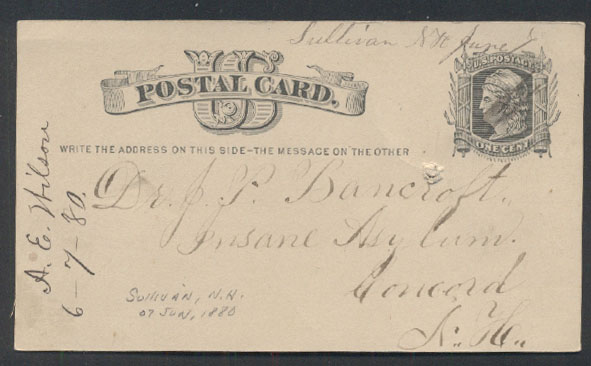 Sullivan NH June 7
U.S. POSTAGE
ONE CENT
US
POSTAL CARD.
WRITE THE ADDRESS ON THIS SIDE-THE MESSAGE ON THE OTHER
Dr. J. P. Bancroft,
Insane Asylum.
Concord
N. H.,
A. E. Wilson
6-7-80.
SULLIVAN, N.H.
07 JUN, 1880